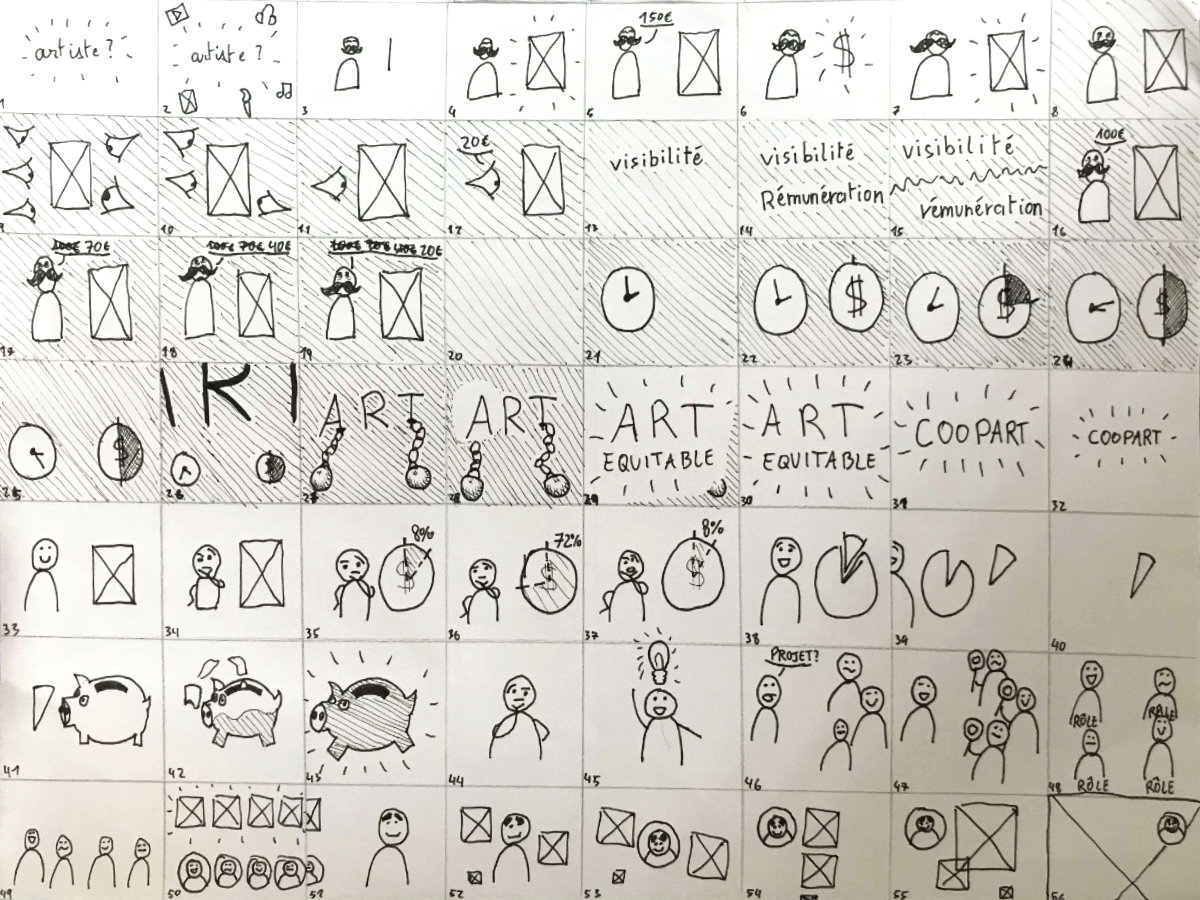 artiste?
1
artiste?
2
3
$
4
150€
5
6
7
8
9
10
11
20€
12
visibilité
13
visibilité
Rémunération
14
visibilité
rémunération
15
100€
16
100€ 70€
17
100€ 70€ 40€
18
100€ 70€ 40€ 20€
19
20
21
$
22
$
23
$
24
$
25
ART
$
26
ART
27
ART
28
ART
EQUITABLE
29
ART
EQUITABLE
30
COOPART
31
COOPART
32
33
34
8%
$
35
72%
$
36
8%
$
37
38
39
40
41
42
43
44
45
PROJET?
46
47
RÔLE
RÔLE
RÔLE
RÔLE
48
49
50
51
52
53
54
55
56